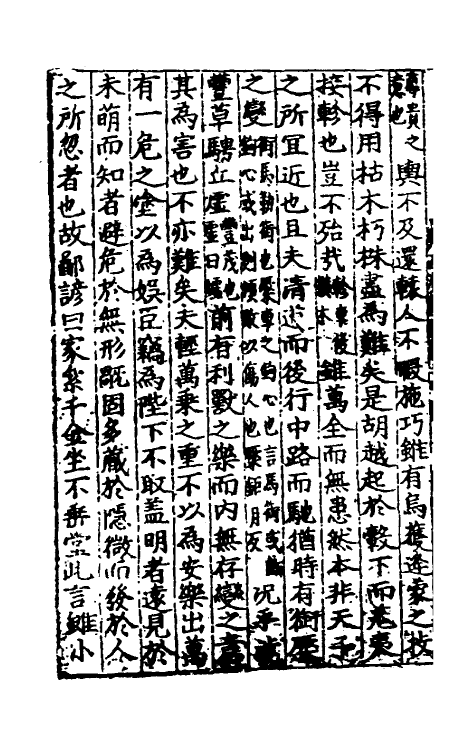 尊貴之意也輿不及還轅人不暇施巧雖有烏獲逢蒙之技
不得用枯木朽株盡為難矣是胡越起於轂下而羌夷
接軫也豈不殆哉軫車後橫木雖萬全而無患然本非天子
之所宜近也且夫清道而後行中路而馳猶時有銜橛
之變銜馬勒銜也橛車之鉤心也言馬銜或斷鉤心或出則傾敗以傷人也橛鉅月反況乎涉
豐草騁丘虛豐茂也虛曰墟前有利獸之樂而內無存變之意
其為害也不亦難矣夫輕萬乘之重不以為安樂出萬
有一危之塗以為娛臣竊為陛下不取蓋明者遠見於
未萌而知者避危於無形既固多藏於隱微而發於人
之所忽者也故鄙諺曰家絫千金坐不垂堂此言雖小